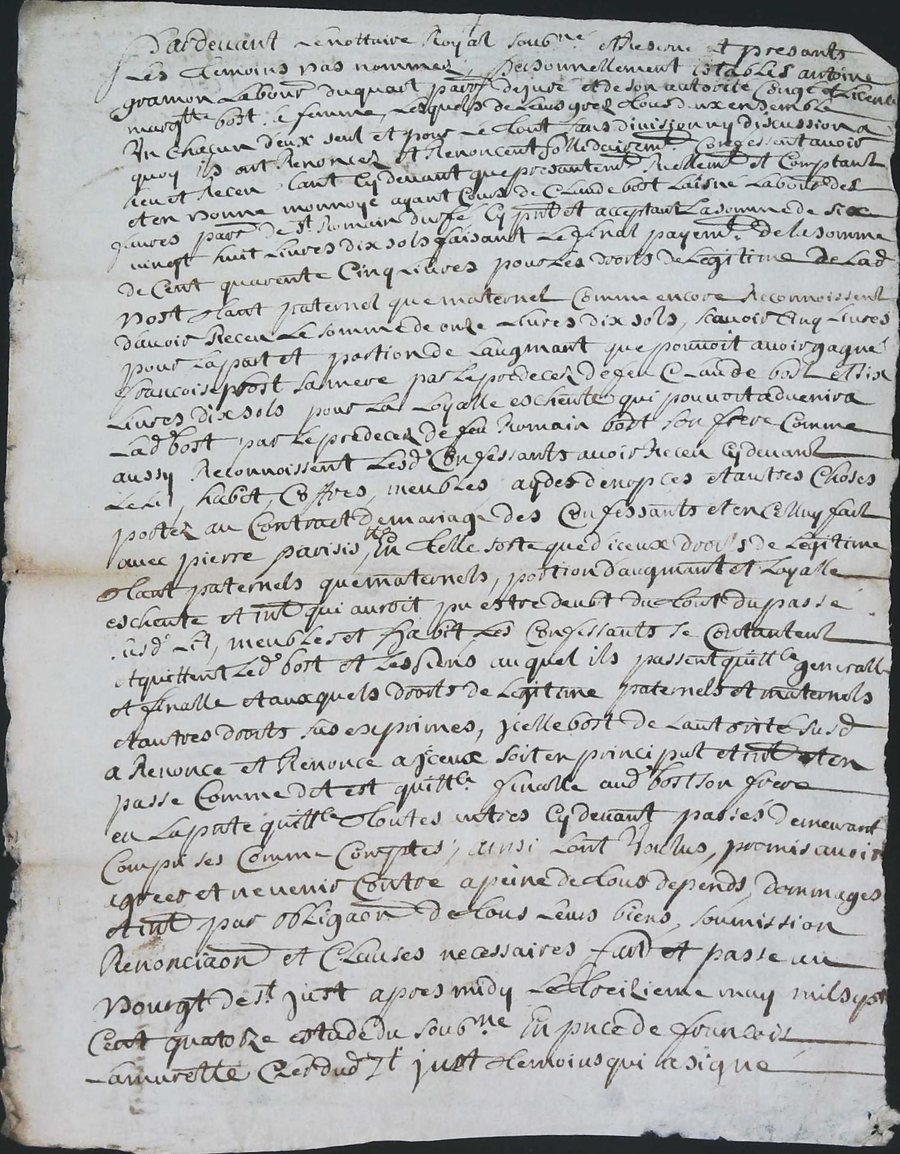 Pardevant Le nottaire Royal soub.né et Reserve et presants
Les temoins bas nommez, Personnellement establis antoine
gramon Labour du quart parr. dejuré et de son autorite Congé et licence
margtte bost sa femme, Lesquels de Leurs grez tous deux ensemble
un chacun deux seul et pour Le tout sans division ny discussion a
quoy ils ont Renoncez et Renoncent sollidairemt Confessent avoir
Reu et Receu tant Cy devant que presantemt Reellemt et Comptant
et en bonne monnoye ayant Cours de Claude bost Laisné Labour des
parr de st Romain durfé Cy pnt et acceptant La somme de six
vingt huit Livres dix sols faisant Le final payemt de le somme
de Cent quarente Cinq Livres pour Les droits de Legitime de Lad
bost tant paternel que maternel Comme encore Reconnoissent
davoir Receu Le somme de onze Livres dix sols, scavoir Cinq Livres
pour La part et portion de Laugmant que pouvoit avoir gagné
francoise bost sa mere par Le predecez de feu Claude bost et six
Livres dix sols pour La Loyalle escheute qui pouvoit advenir a
Lad bost par Le predecez de feu Romain bost son frere Comme
aussy Reconnoissent Lesd Confessants avoir Receu Cy devant
Le Lit, habit, Coffres, meubles aydes de nopces et autres Choses
portez au Contract de mariage des Confessants et en Celluy fait
avec pierre parisis, En telle sorte que diceux droits de Legitime
tant paternels que maternels, portion daugmant et Loyalle
escheute et int qui auroit pu estre deubt du tout du passé
Lit, meubles et habit Les Confessants se Contantent
et quittent Led bost et Les siens auquel ils passent quittce generalle
et finalle et auxquels droits de Legitime paternels et maternels
et autres droits sus exprimes, jcelle bost de Lautorité susd
a Renoncé et Renonce a jceux soit en principal et int et en
passe Comme dt est quittce finalle aud bost son frere
en La pnte quittce toutes autres Cy devant passés demeurant
Comprises Comme Comptes, ainsi Lont voulus, promis avoir
agreer et ne venir Contre a peine de tous depends, dommages
et int par obligaon de tous Leurs biens, soumission
Renonciaon et Clauses necessaires, fait et passe au
bourgt de st just apres midy Le treizieme may mil sept
Cent quatorze estude du soubne En pnce de francois
Lamurette Clerc dud st just temoins qui a signe